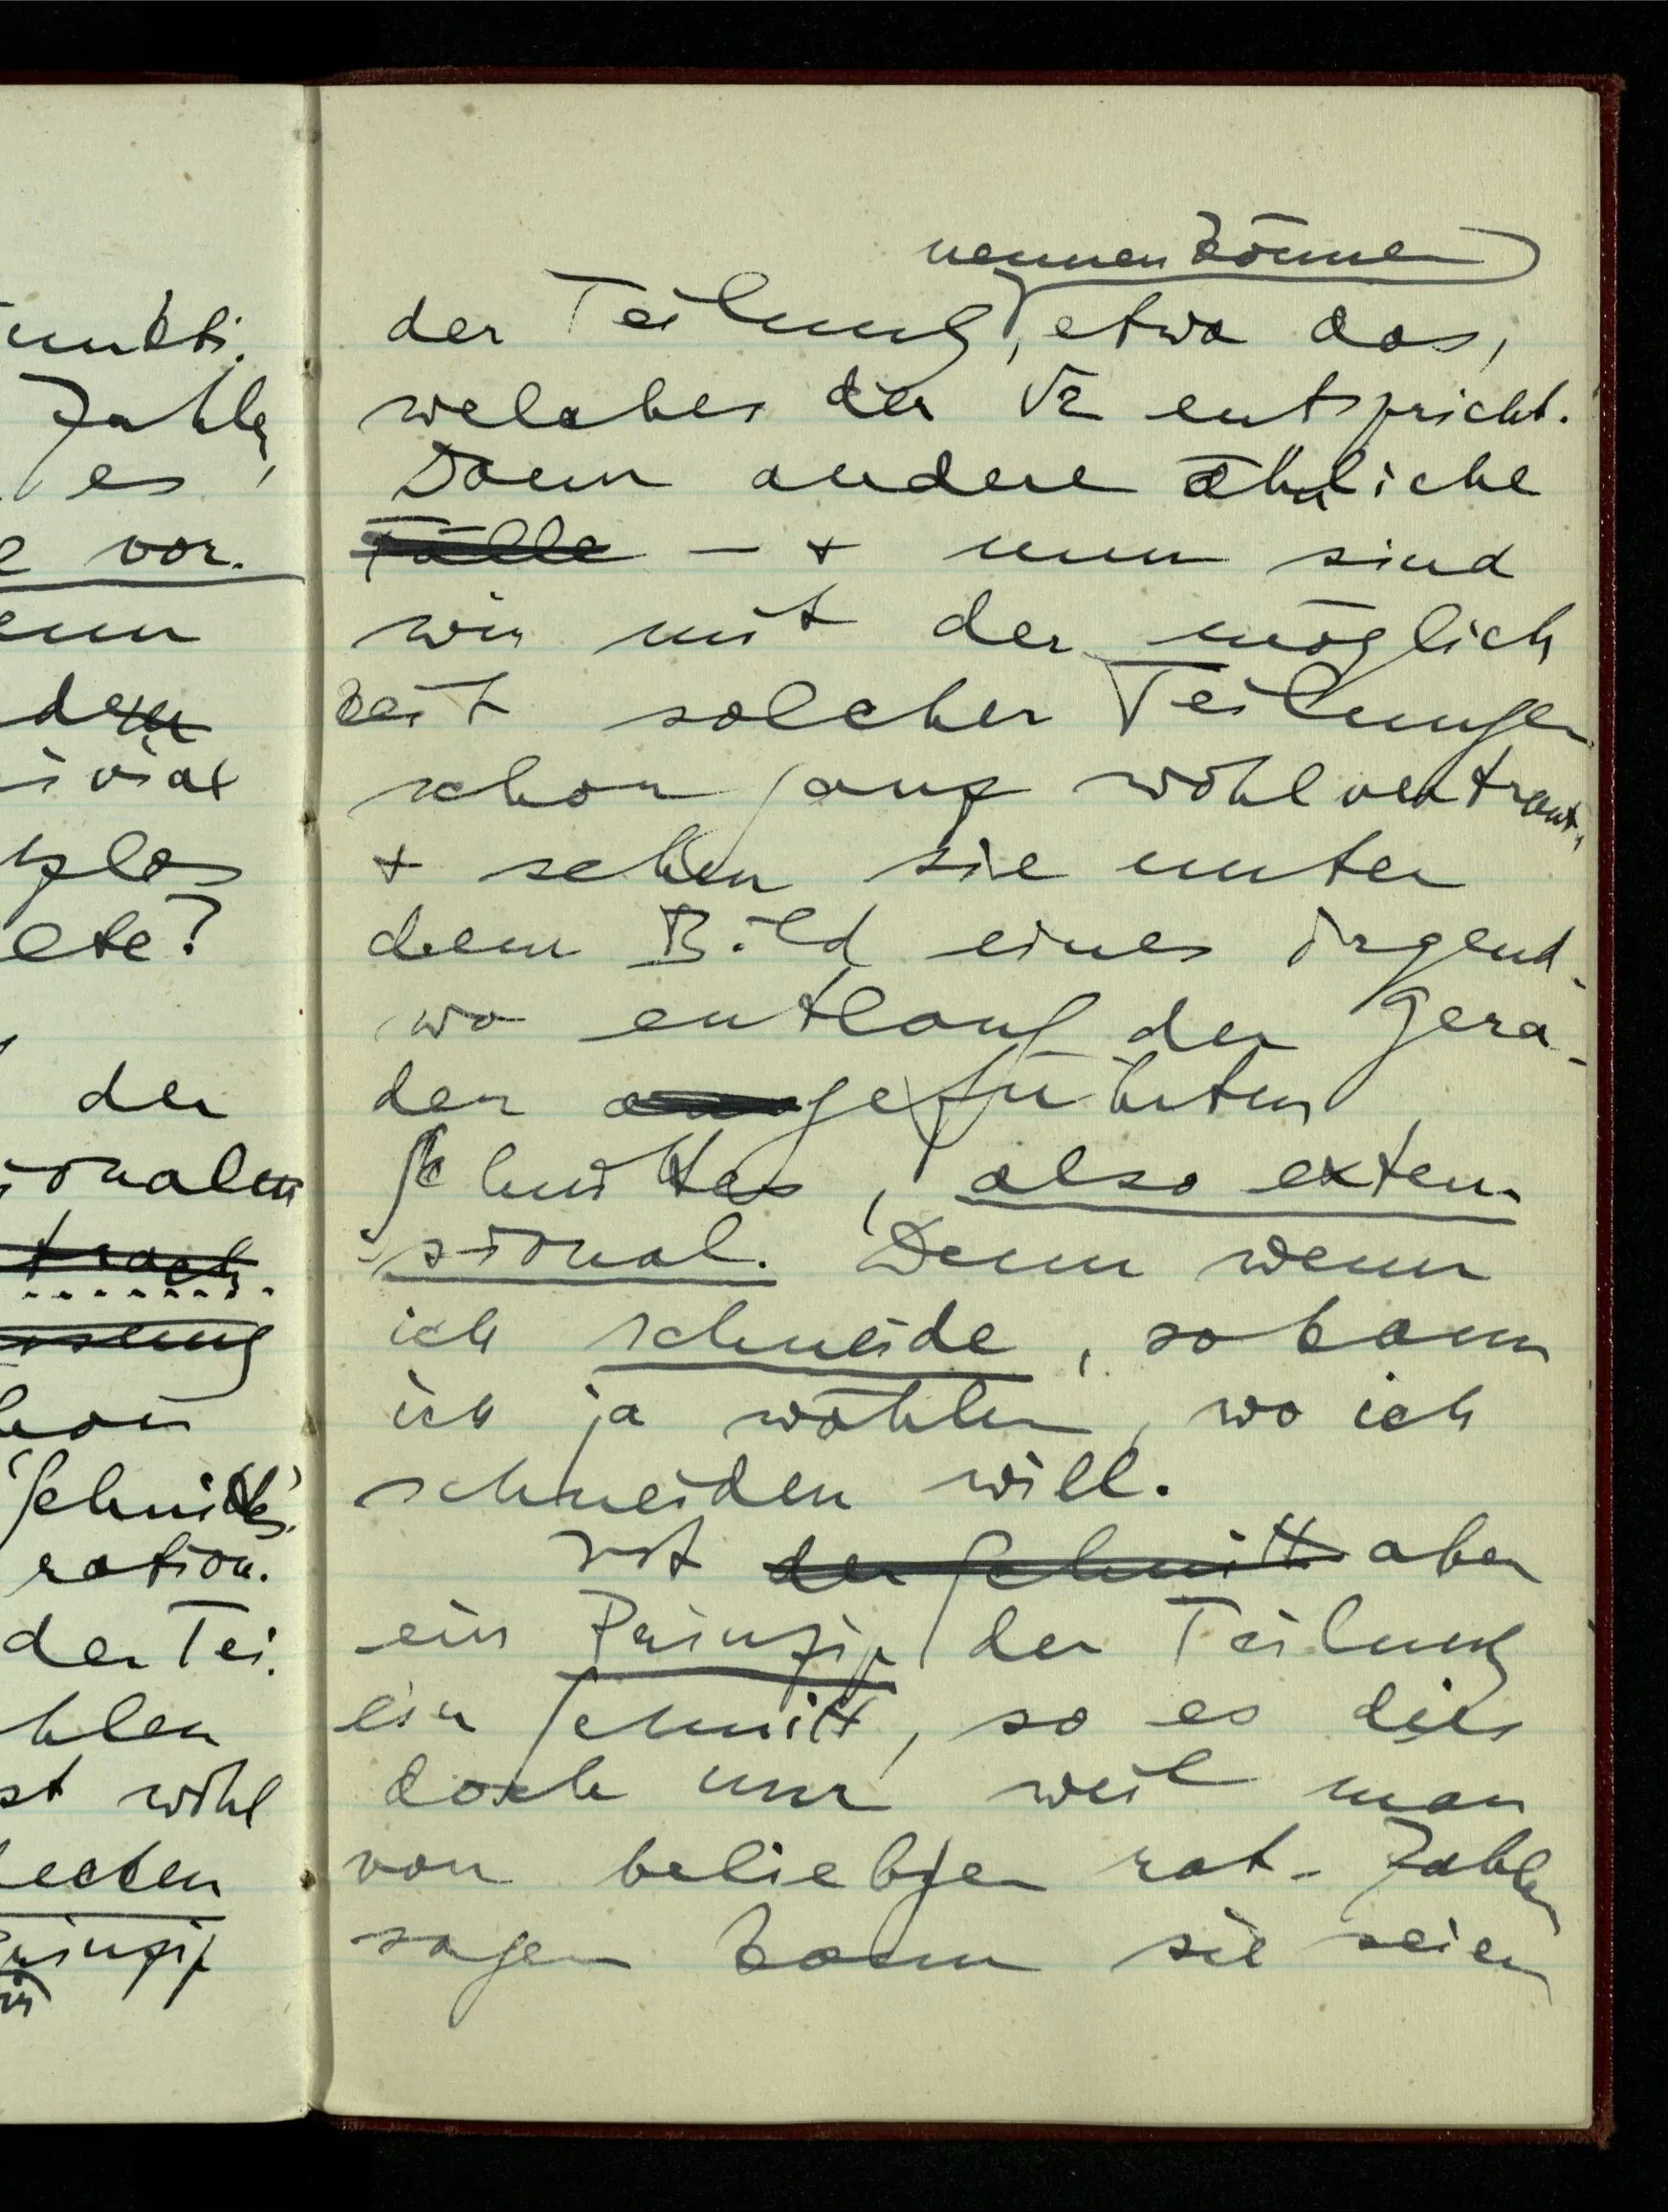 unkti.
Zahlen
es,
vor.
enn
ivial
ete?
der
ionalen
Schnittes'.
ration.
der Tei.
hlen
st wohl
ecken
Prinzip
nennen können
der Teilung, etwa das,
welches der √2 entspricht.
Dann andere ähnliche
Fälle – + nun sind
wir mit der möglich
keit solcher Teilungen
schon ganz wohl vertraut,
+ sehen sie unter
dem Bild eines irgend-
wo entlang der Gera-
den geführten
Schnittes, also exten-
sional. Denn wenn
ich schneide, so kann
ich ja wählen, wo ich
schneiden will.
Ist der Schnitt aber
ein Prinzip der Teilung
ein Schnitt, so es dies
doch nur weil man
von beliebgen rat. Zahlen
sagen kann sie seien